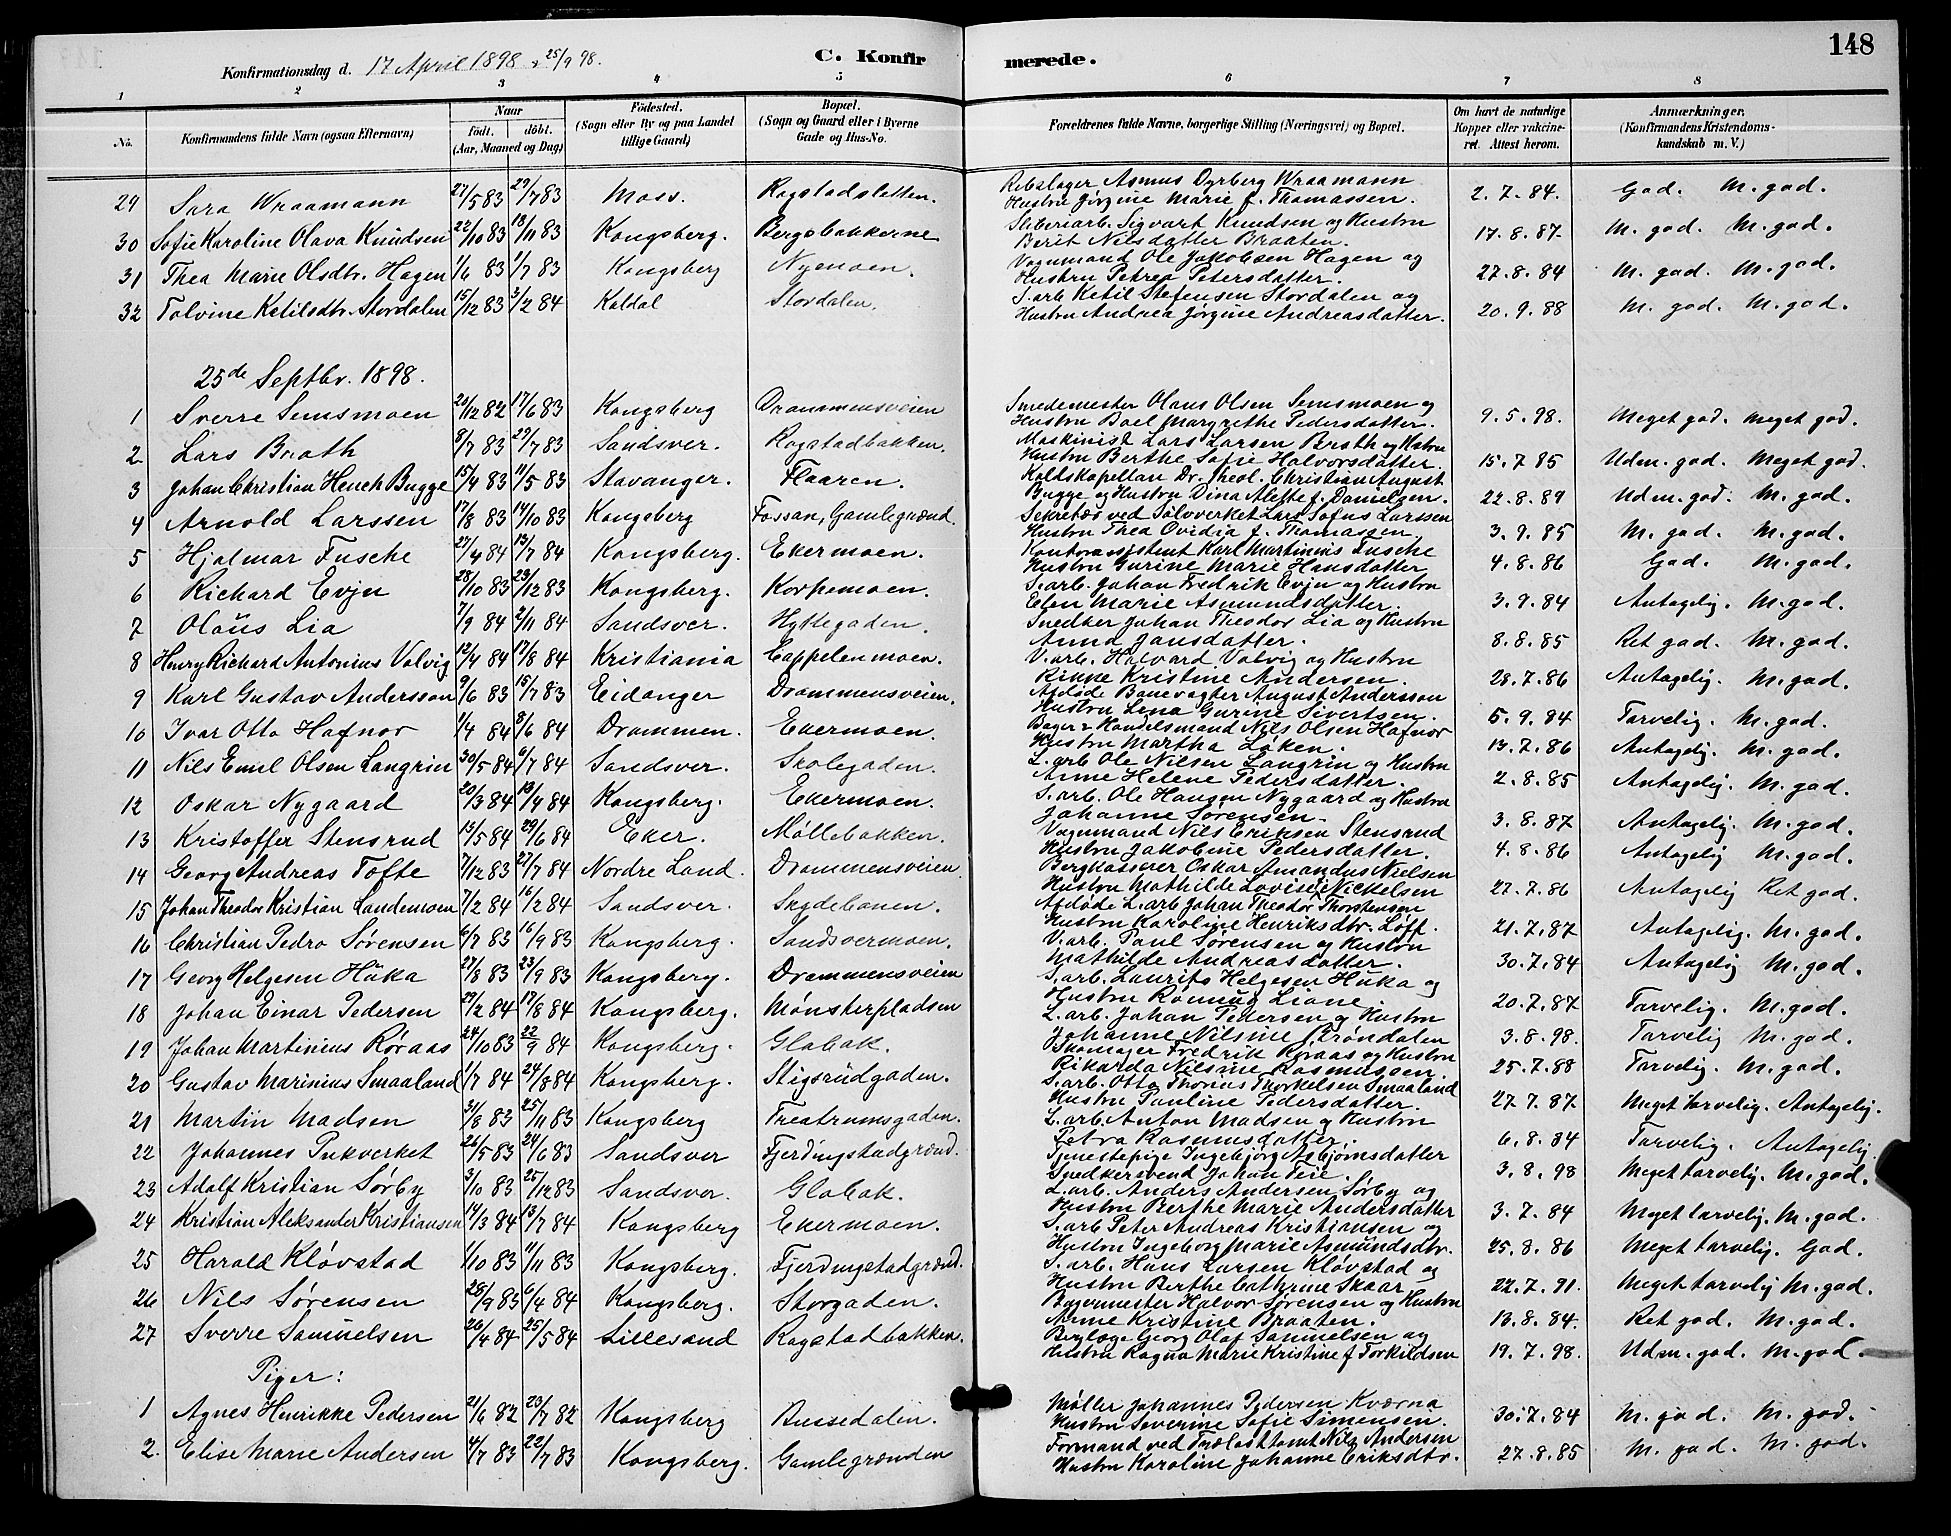 148
Konfirmationsdag d. 17 April 1898 & 25/9 98.
C. Konfirmerede.
1 2 3 4 5 6 7 8
No. Konfirmandens fulde Navn (ogsaa Efternavn) Naar födt. döbt. (Aar, Maaned og Dag) Födested. (Sogn eller By og paa Landet tillige Gaard) Bopæl. (Sogn og Gaard eller i Byerne Gade og Hus-No. Forældrenes fulde Navne, borgerlige Stilling (Næringsvei) og Bopæl. Om havt de naturlige Kopper eller vakcineret. Attest herom. Anmærkninger. (Konfirmandens Kristendomskundskab m. V.)
29 Sara Wraamann 27/5 83 29/7 83 Moss. Rogstadsletten. Rebslager Asmus Dyrberg Wraamann Hustru Jörgine Marie f. Thomassen. 2.7.84. God. M. god.
30 Sofie Karoline Olava Knudsen 22/10 83 18/11 83 Kongsberg. Bergsbakkerne Sliberiarb. Sigvart Knudsen og Hustru Berit Nilsdatter Braaten. 17.8.87. M. god. M. god.
31 Thea Marie Olsdtr. Hagen 1/6 83 1/7 83 Kongsberg Nyemoen. Vognmand Ole Jakobsen Hagen og Hustru Petrea Petersdatter. 27.8.84 M. god. M. god.
32 Tolvine Ketilsdtr. Stordalen 15/12 83 3/2 84 Koldal Stordalen. S. arb. Ketil Stefensen Stordalen og Hustru Andrea Jörgine Andreasdatter. 20.9.88 M. god. M. god.
25de Septbr. 1898.
1 Sverre Semsmoen 20/12 82 17/6 83 Kongsberg Drammensveien Smedemester Olaus Olsen Semsmoen og Hustru Boel Margrethe Pedersdatter. 9.5.98. Meget god. meget god.
2 Lars Brath 8/7 83 29/7 83 Sandsver. Rogstadbakken. Maskinist Lars Larsen Brath og Hustru Berthe Sofie Halvorsdatter. 15.7.85 Udm. god. Meget god.
3 Johan Christian Heuch Bugge 15/4 83 11/5 83 Stavanger. Flaaren. Kaldskapellan Dr. theol. Christian August Bugge og Hustru Dina Alette f. Danielsen. 22.8.89 Udm. god. M. god.
4 Arnold Larssen 17/8 83 14/10 83 Kongsberg Fossan, Gamlegrænd. Sekretær ved Sölvverket Lars Sofus Larssen Hustru Thea Ovidia f. Thomassen. 3.9.85 M. god. M. god.
5 Hjalmar Fusche 27/4 84 13/7 84 Kongsberg. Ekermoen. Kontorassistent Karl Martinius Fusche Hustru Gurine Marie Hansdatter 4.8.86 God. M. god.
6 Richard Evju 28/10 83 23/12 83 Kongsberg. Korpemoen. S. arb. Johan Fredrik Evju og Hustru Elen Marie Asmundsdatter. 3.9.84 Antagelig. M. god.
7 Olaüs Lia 7/9 84 2/11 84 Sandsver. Hyttegaden. Snedker Johan Theodor Lia og Hustru Anna Jansdatter. 8.8.85 Ret god. M. god.
8 Henry Richard Antonius Valvig 12/4 84 17/8 84 Kristiania Cappelenmoen. V. arb. Halvard Valvig og Hustru Rikke Kristine Andersen. 28.7.86 Antagelig. M. god.
9 Karl Gustav Andersson 9/6 83 15/7 83 Eidanger Drammensveien. Afdöde Banevagter August Andersson Hustru Lena Gurine Sivertsen. 5.9.84 Tarvelig. M. god.
10 Ivar Otto Hafnor 1/4 84 8/6 84 Drammen. Ekermoen. Bager & Handelsmand Nils Olsen Hafnor Hustru Martha Løken. 13.7.86 Antagelig. M. god.
11 Nils Emil Olsen Langrin 30/5 84 6/7 84 Sandsver. Skolegaden. L. arb. Ole Nilsen Langrin og Hustru Anne Helene Pedersdatter. 2.8.85 Antagelig. M. god.
12 Oskar Nygaard 20/3 84 19/4 84 Kongsberg. Ekermoen. S. arb. Ole Hansen Nygaard og Hustru Johanne Sørensen. 3.8.87 Antagelig. M. god.
13 Kristoffer Stensrud 15/5 84 29/6 84 Eker. Møllebakken. Vognmand Nils Eriksen Stensrud Hustru Jakobine Pedersdatter. 4.8.86 Antagelig M. god.
14 Georg Andreas Tofte 7/12 83 27/7 84 Nordre Land. Drammensveien. Bergkasserer Oskar Amandus Nielsen Hustru Mathilde Lovise f. Nickelsen 27.7.86 Antagelig Ret god.
15 Johan Theodor Kristian Landemoen 7/2 84 16/2 84 Sandsver. Skydebanen. Afdöde L. arb. Johan Theodor Thorstensen Hustru Karoline Henriksdtr. Löff. 21.7.87 Antagelig. M. god.
16 Christian Pedro Sørensen 6/7 83 16/9 83 Kongsberg. Sandsvermoen. V. arb. Paul Sørensen og Hustru Mathilde Andreasdatter. 30.7.84 Antagelig M. god.
17 Georg Helgesen Hüka 27/8 83 23/9 83 Kongsberg. Drammensveien S. arb. Laurits Helgesen Hüka og Hustru Rønnüg Liane. 20.7.87 Tarvelig. M. god.
18 Johan Einar Pedersen 29/2 84 17/8 84 Kongsberg. Mønsterpladsen L. arb. Johan Pedersen og Hustru Johanne Nilsine Brøndalen 3.8.98. Tarvelig M. god.
19 Johan Martinius Røraas 24/10 83 22/9 84 Kongsberg. Glabak. Skomager Fredrik Røraas og Hustru Rikarda Nilsine Rasmussen. 25.7.88 Tarvelig. M. god.
20 Gustav Marinius Smaaland 1/7 84 24/8 84 Kongsberg. Stigsrüdgaden. S. arb. Otto Thonius Thorkelsen Smaaland Hustru Pauline Pedersdatter. 27.7.87. Meget tarvelig. Antagelig.
21 Martin Madsen 31/8 83 25/11 83 Kongsberg Treatrumsgaden. L. arb. Anton Madsen og Hustru Petra Rasmusdatter. 6.8.84 Tarvelig. Antagelig.
22 Johannes Pukverket 26/5 83 24/6 83 Sandsver Fjerdingstadgrænd. Tjenestepige Ingebjørg Asbjørnsdatter Snedkersvend Johan Teie. 3.8.98 Meget tarvelig. M. god.
23 Adolf Kristian Sørby 3/10 83 25/12 83 Sandsver. Glabak. L. arb. Anders Andersen Sørby og Hustru Berthe Marie Andersdatter 3.7.84 Meget tarvelig. M. god.
24 Kristian Aleksander Kristiansen 14/3 84 13/7 84 Kongsberg Ekermoen. S. arb. Peter Andreas Kristiansen og Hustru Ingeborg Marie Asmündsdtr. 25.8.86 Meget tarvelig. God.
25 Harald Kløvstad 1/10 83 11/11 83 Kongsberg. Fjerdingstadgrænd. S. arb. Hans Larsen Kløvstad og Hustru Berthe Cathrine Skaar 22.7.91. Meget tarvelig M. god.
26 Nils Sørensen 28/9 83 6/4 84 Kongsberg. Storgaden. Bagermester Halvor Sørensen og Hustru Anne Kristine Braaten. 18.8.84. Ret god. M. god.
27 Sverre Samüelsen 26/4 84 25/5 84 Lillesand Rogstadbakken. Byfoge Georg Olaf Samuelsen og Hustru Ragna Marie Kristine f. Torkildsen 19.7.98. Udm. god. M. god.
Piger:
1 Agnes Henrikke Pedersen 21/6 82 23/7 82 Kongsberg Bussedalen. Møller Johannes Pedersen Kværna Hustru Severine Sofie Simensen. 30.7.84 M. god. M. god.
2. Elise Marie Andersen 4/7 83 22/7 83 Kongsberg. Gamlegrænden Formand ved Trælasttomt Nils Andersen Hustru Karoline Johanne Eriksdtr. 27.8.85 M. god. M. god.